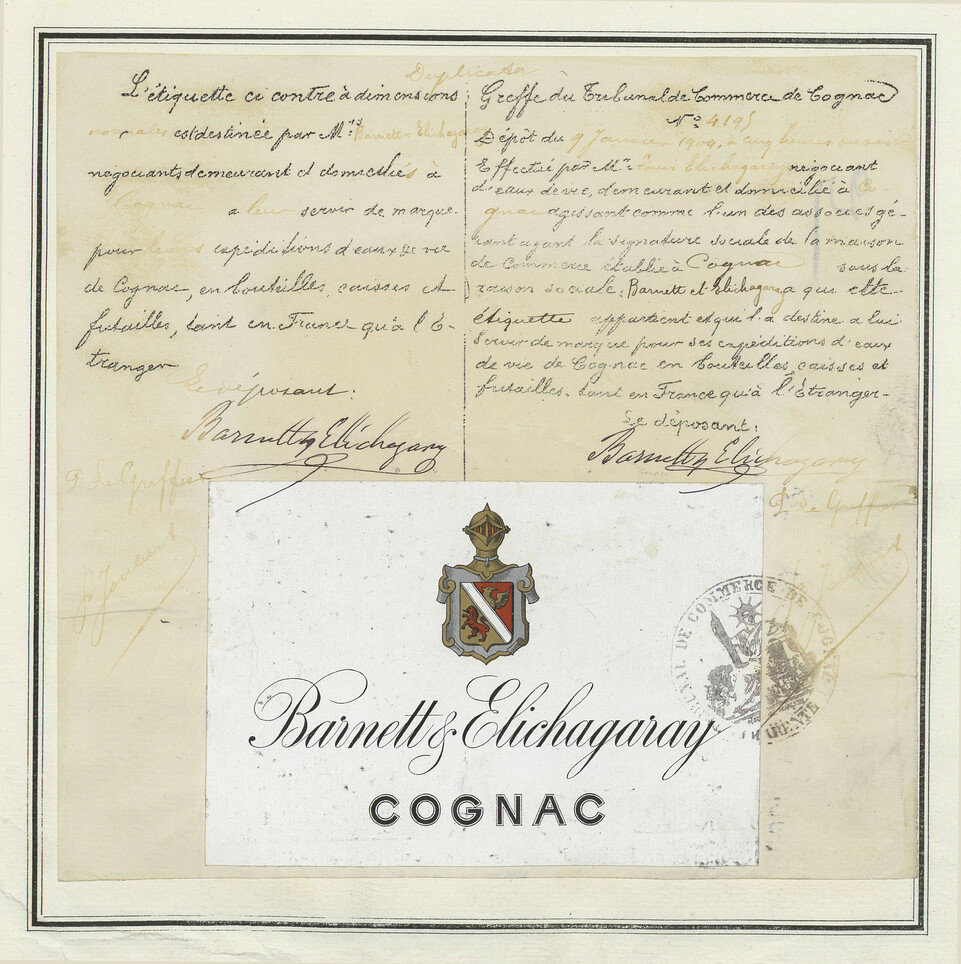 Duplicata
L'étiquette ci contre à dimensions
normales est destinée par M.rs Barnett & Elichagaray
négociants demeurant et domiciliés à
Cognac a leur servir de marque
pour leurs expéditions d'eaux de vie
de Cognac, en bouteilles, caisses et
futailles, tant en France qu'à l'É-
tranger
Le déposant:
Barnett & Elichagaray
P. Le Greffier
Greffe du Tribunal de Commerce de Cognac
N.o 4195
Dépôt du 9 Janvier 1904, à cinq heures
Effectué par M.r Louis Elichagaray négociant
d'eaux de vie, demeurant et domicilié à Co-
gnac agissant comme l'un des associés gé-
rant ayant la signature sociale de la maison
de Commerce établie à Cognac sous la
raison sociale: Barnett et Elichagaray a qui cette
étiquette appartient et qui l'a destine a lui
servir de marque pour ses expéditions d'eaux
de vie de Cognac en bouteilles, caisses et
futailles, tant en France qu'à l'Étranger-
Le déposant:
Barnett & Elichagaray
P. Le Greffier
TRIBUNAL DE COMMERCE DE COGNAC
CHARENTE
Barnett & Elichagaray
COGNAC